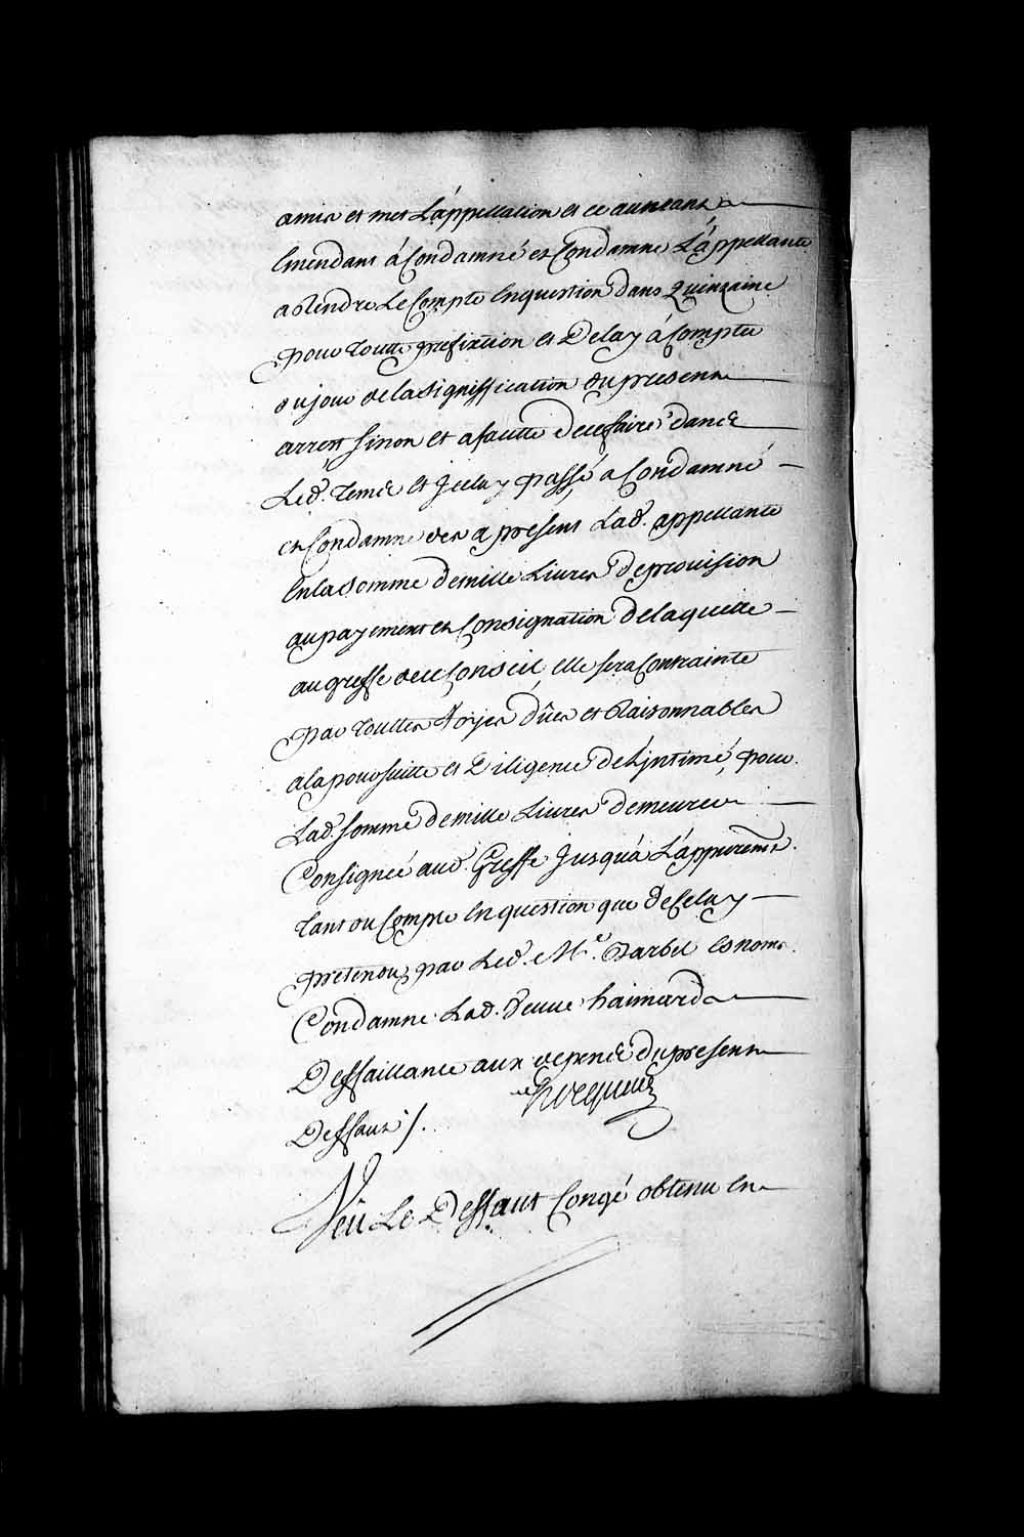 amis et met L'appellation et ce au neant
Emendant à Condamné et Condamne L'appellante
a Rendre Le Compte En question dans Quinzaine
pour toutte prefixtion et Delay à Compter
du jour de la Signiffication du present
arrest sinon et a fautte de ce faire dans
Led. tems et Icelay passé a Condamné
et Condamne des a present Lad. appellante
En la Somme de mille Livres de provision
au payement et Consignation de laquelle
au greffe de ce Conseil, elle sera Contrainte
par touttes Voyes dûes et Raisonnables
a la poursuitte et Diligence de L'jntimé, pour
Lad. Somme de mille Livres demeurer
Consignée aud. Greffe Jusqu'à L'appurem.t
tant du Compte En question que de Celuy
pretendu par Led. M.e Barbel es noms.
Condamne Lad. Veuve haimard
Deffaillante aux depens du present
Deffaut /.
hocquart
Veu Le Deffaut Congé obtenu En